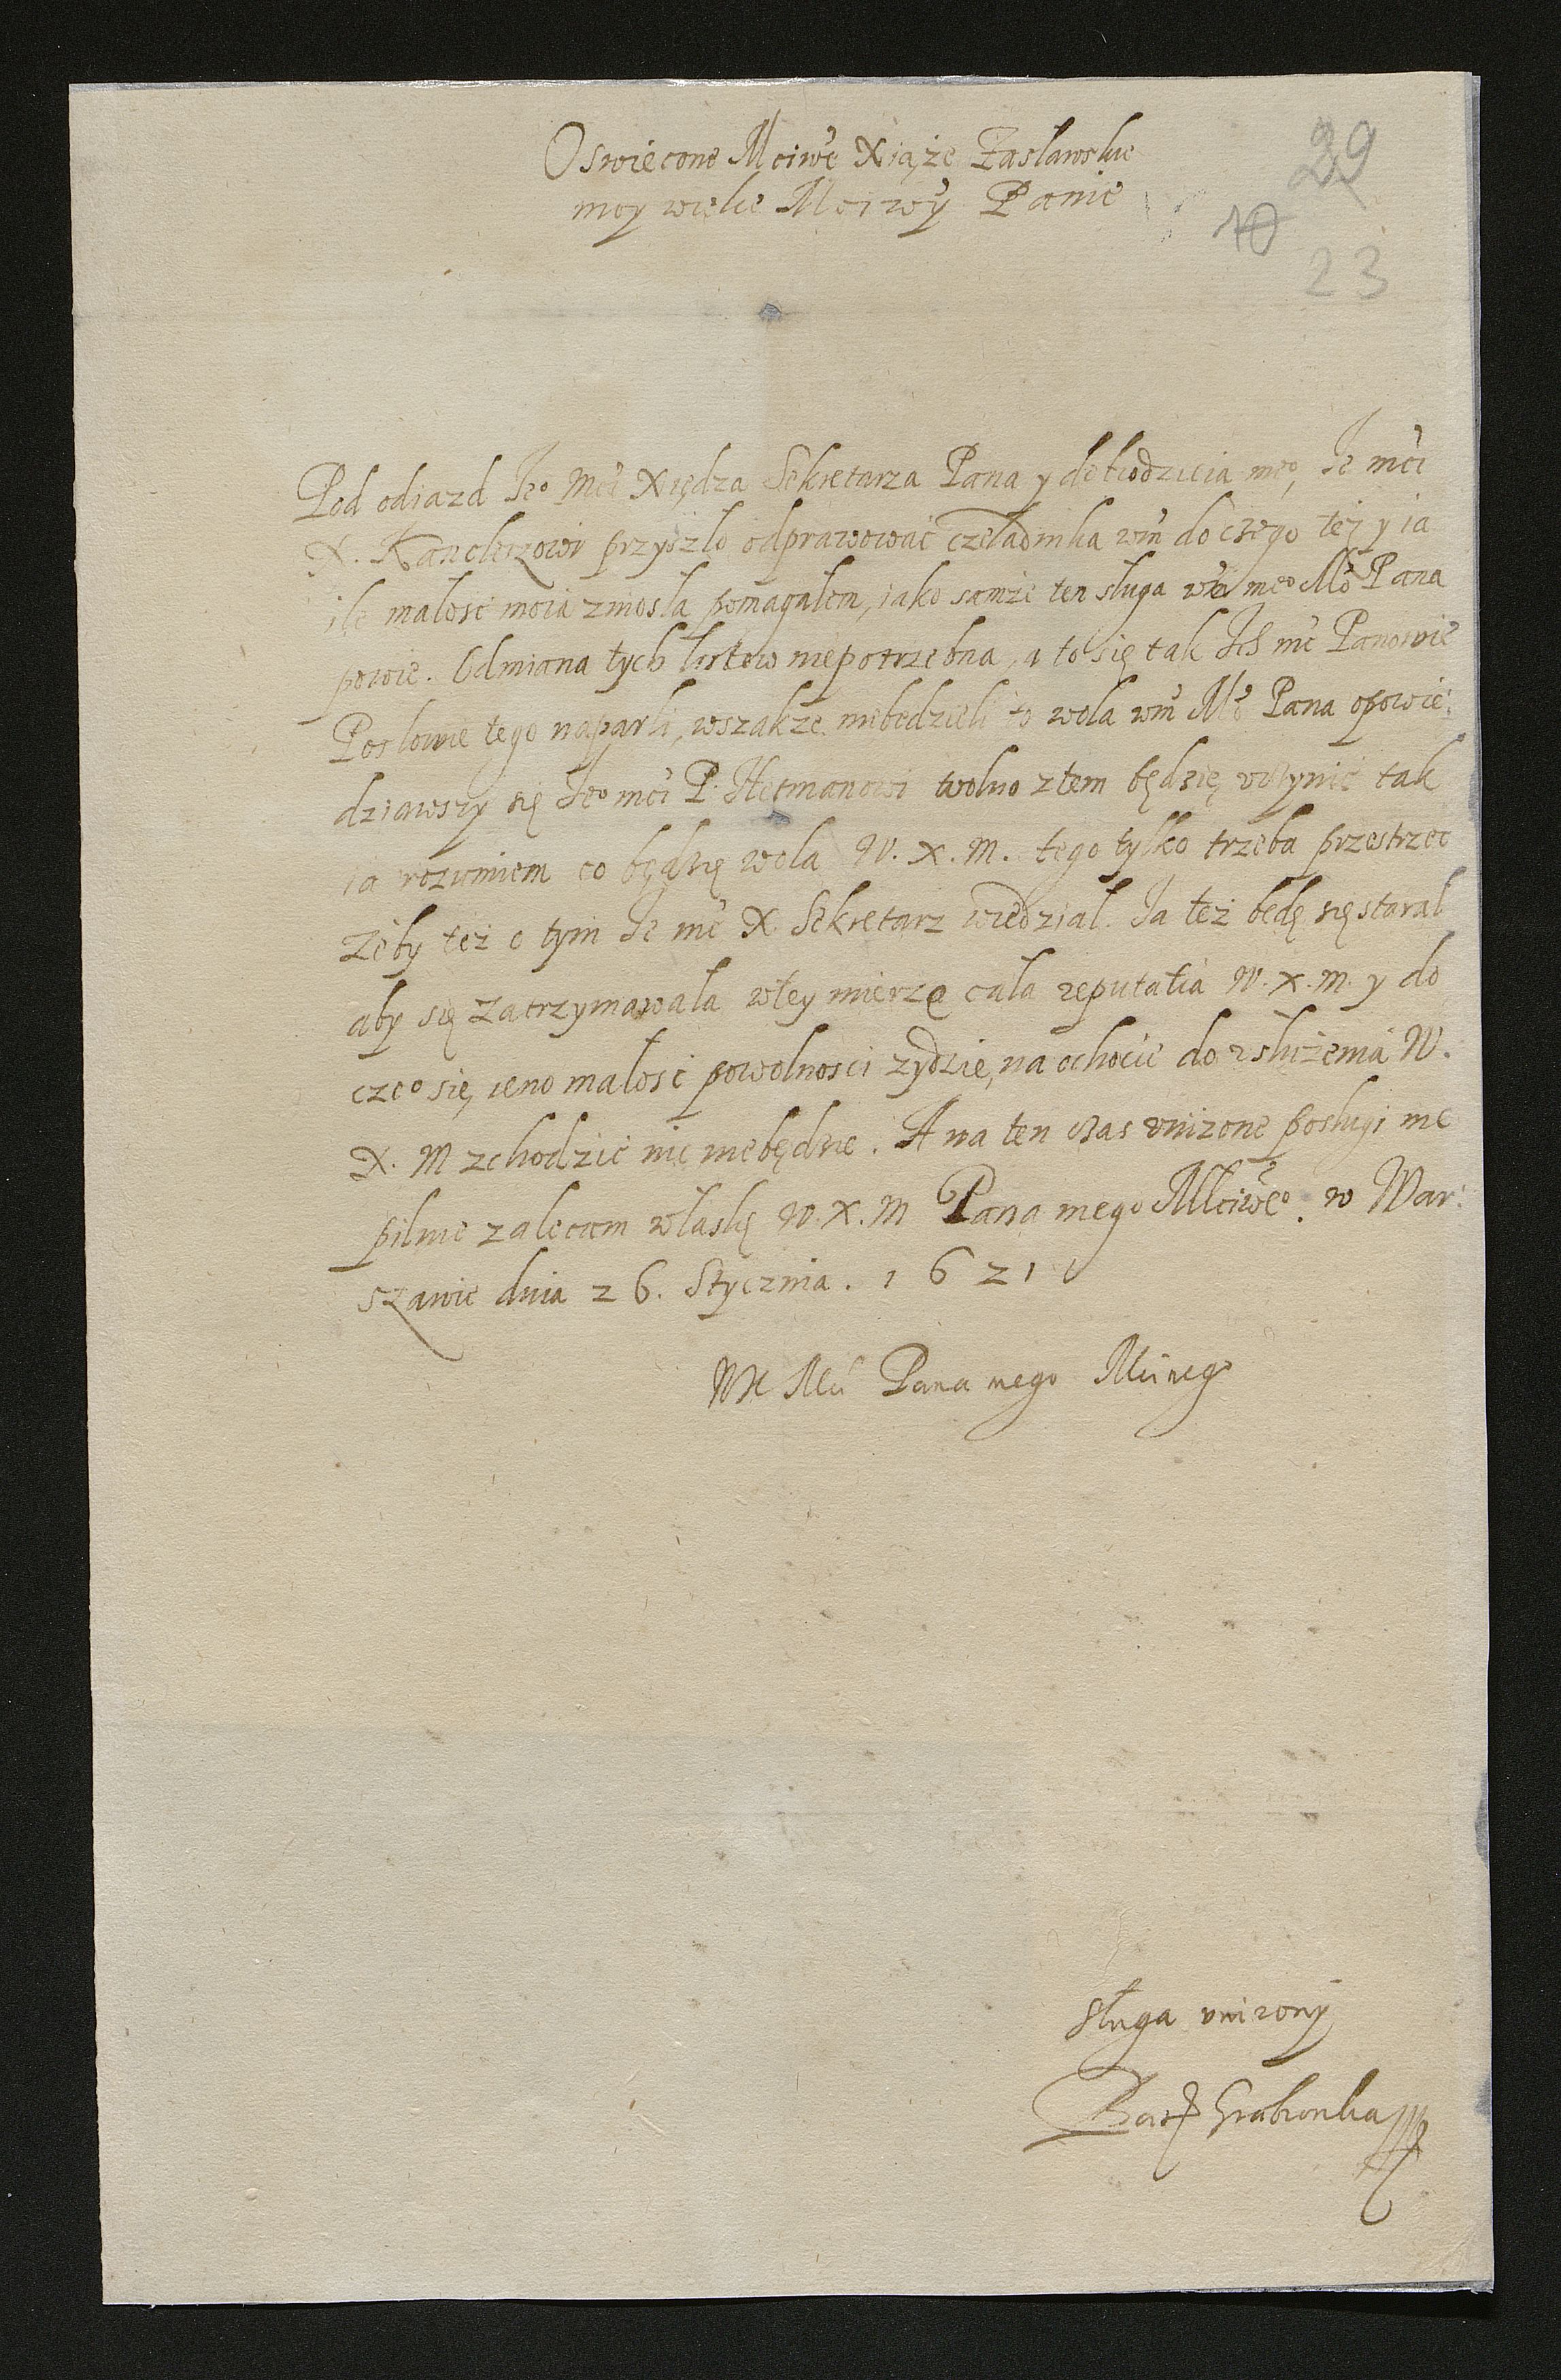 Oswiecone Mciwe Xiąże Zasławskie
moy wielce Mciwy Panie
29
10
23
Pod odiazd Jeº Mci Xiędza Sekretarza Pana y dobrodzieia meº, Je mći
X. Kanclerzowi przyszło odprawować czeladnika wm do czego też y ia
ile małosc moia zniosła pomagałem, iako samże ten sługa wm meº Mº Pana
powie. Odmiana tych listow niepotrzebna, a to się tak Ich mć Panowie
Posłowie tego naparli, wszakże niebędzieli to wola wm Mº Pana opowie:
dziawszy się Jeº mći P. Hetmanowi wolno ztem będzię uczynić tak
ia rozumiem co będzię wola W. X. M. tego tylko trzeba przestrzec
żeby też o tym Je mć X. Sekretarz wiedział. Ja też będę się starał
aby się zatrzymawała wtey mierze cała reputatia W. X. M. y do
czeº się, ieno małosć powolnosci zydzie, na ochocie do służenia W.
X. M zchodzić nie niebędzie. A na ten czas vniżone posługi me
pilnie zalecam właskę W. X. M Pana mego Mciweº. w War:
szawie dnia 26. Stycznia. 1621
Pana mego Mciweg
Sługa vnizony
Grabianka